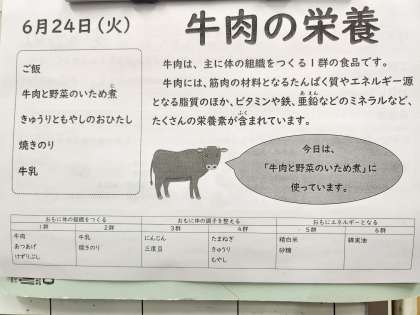 6月24日(火)
牛肉の栄養
ご飯
牛肉と野菜のいため煮
きゅうりともやしのおひたし
焼きのり
牛乳
牛肉は、主に体の組織をつくる1群の食品です。
牛肉には、筋肉の材料となるたんぱく質やエネルギー源
となる脂質のほか、ビタミンや鉄、亜鉛などのミネラルなど、
たくさんの栄養素が含まれています。
今日は、
「牛肉と野菜のいため煮」に
使っています。
おもに体の組織をつくる おもに体の調子を整える おもにエネルギーとなる
1群 2群 3群 4群 5群 6群
牛肉 牛乳 にんじん たまねぎ 精白米 綿実油
あつあげ 焼きのり 三度豆 きゅうり 砂糖
けずりぶし もやし